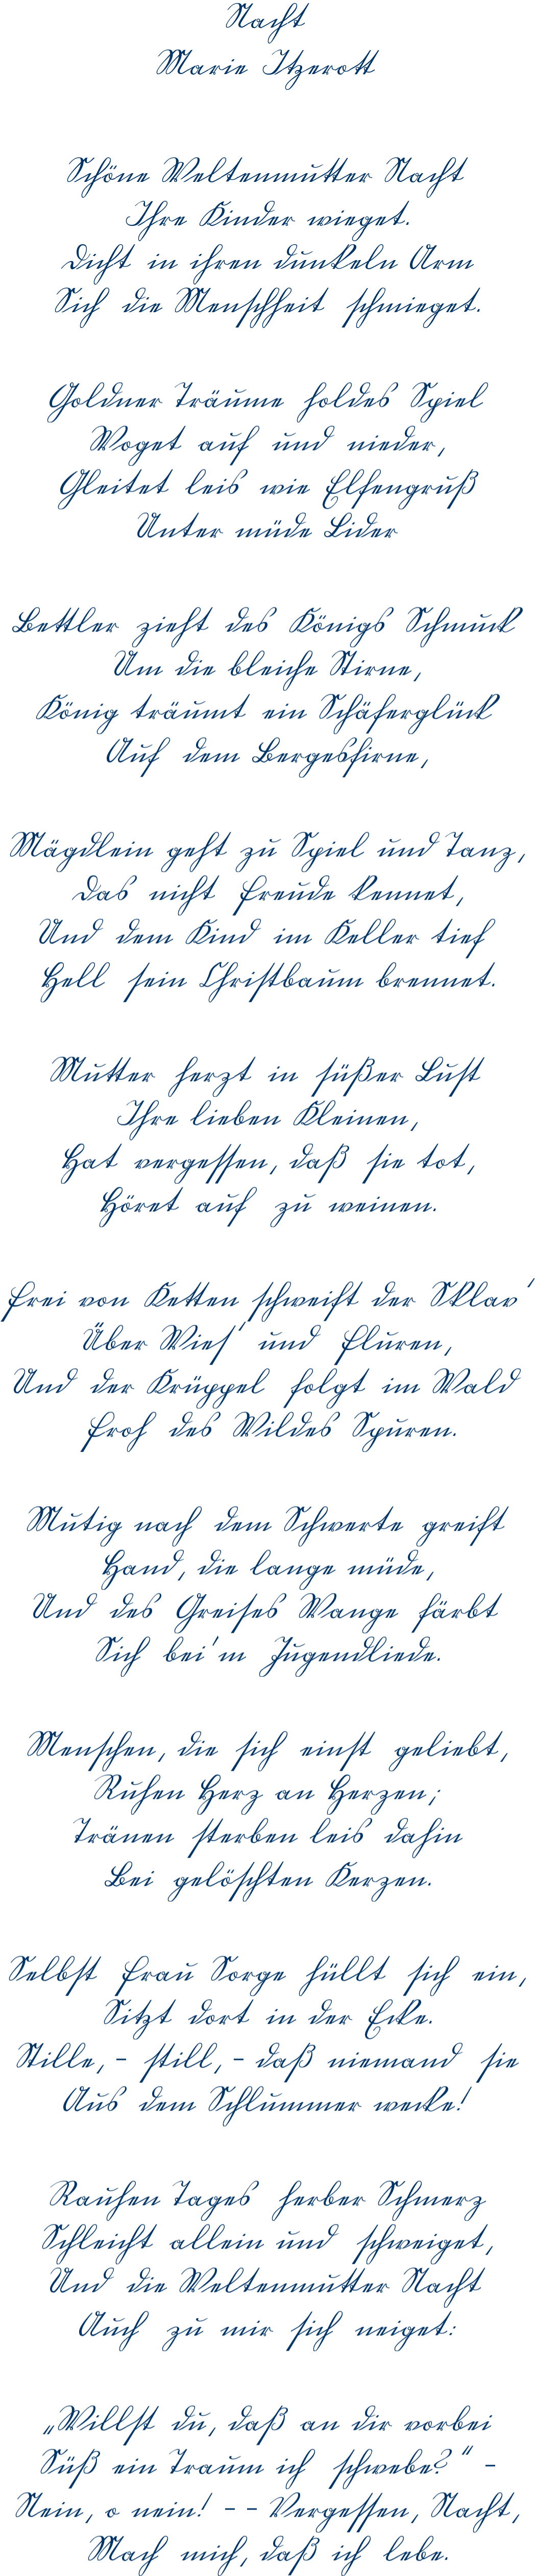 Nacht
Marie Itzerott
Schöne Weltenmutter Nacht
Ihre Kinder wieget.
Dicht in ihren dunkeln Arm
Sich die Menschheit schmieget.
Goldner Träume holdes Spiel
Woget auf und nieder,
Gleitet leis wie Elfengruß
Unter müde Lider
Bettler zieht des Königs Schmuck
Um die bleiche Stirne,
König träumt ein Schäferglück
Auf dem Bergesfirne,
Mägdlein geht zu Spiel und Tanz,
Das nicht Freude kennet,
Und dem Kind im Keller tief
Hell sein Christbaum brennet.
Mutter herzt in süßer Lust
Ihre lieben Kleinen,
Hat vergessen, daß sie tot,
Höret auf zu weinen.
Frei von Ketten schweift der Sklav'
Über Wies' und Fluren,
Und der Krüppel folgt im Wald
Froh des Wildes Spuren.
Mutig nach dem Schwerte greift
Hand, die lange müde,
Und des Greises Wange färbt
Sich bei'm Jugendliede.
Menschen, die sich einst geliebt,
Ruhen Herz an Herzen;
Tränen sterben leis dahin
Bei gelöschten Kerzen.
Selbst Frau Sorge hüllt sich ein,
Sitzt dort in der Ecke.
Stille, – still, – daß niemand sie
Aus dem Schlummer wecke!
Rauhen Tages herber Schmerz
Schleicht allein und schweiget,
Und die Weltenmutter Nacht
Auch zu mir sich neiget:
„Willst du, daß an dir vorbei
Süß ein Traum ich schwebe?“ –
Nein, o nein! – – Vergessen, Nacht,
Mach mich, daß ich lebe.